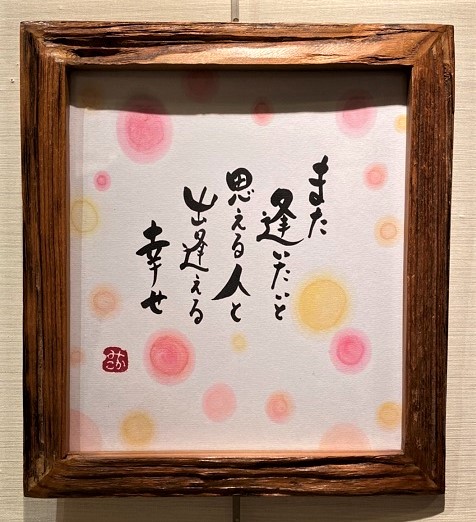 また
逢いたいと
思える人と
出逢える
幸せ